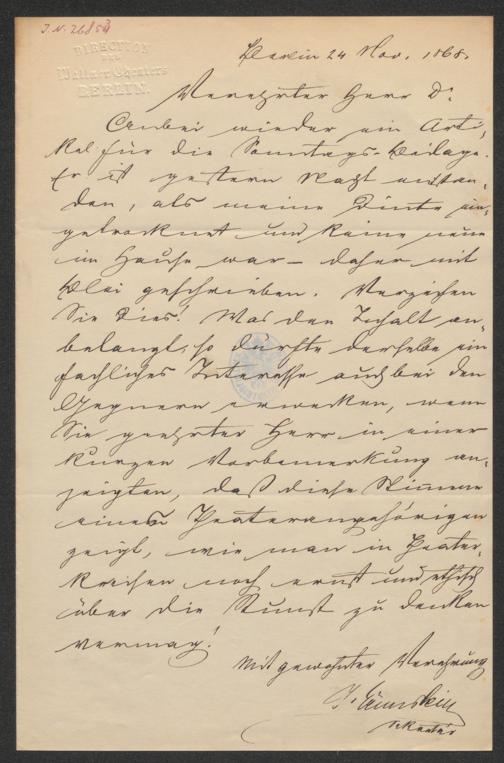 J. N. 26853
DIRECTION
DES
Wallner-Theaters
BERLIN.
Berlin 24 Nov. 1868.
Verehrter Herr Dr
Anbei wieder ein Arti-
kel für die Sonntags-Beilage.
Er ist gestern Nacht entstan-
den, als meine Dinte ein-
getrocknet und keine neue
im Hause war – daher mit
Blei geschrieben. Verzeihen
Sie dies! Was den Inhalt an-
belangt, so dürfte derselbe ein
fachliches Interesse auch bei den
Gegnern erwecken, wenn
Sie geehrter Herr in einer
kurzen Vorbemerkung an-
zeigten, daß diese Stimme
eines Theaterangehörigen
zeigt, wie man in Theater-
kreisen noch ernst und ethisch
über die Kunst zu denken
vermag!
Mit gewohnter Verehrung
Sekretär